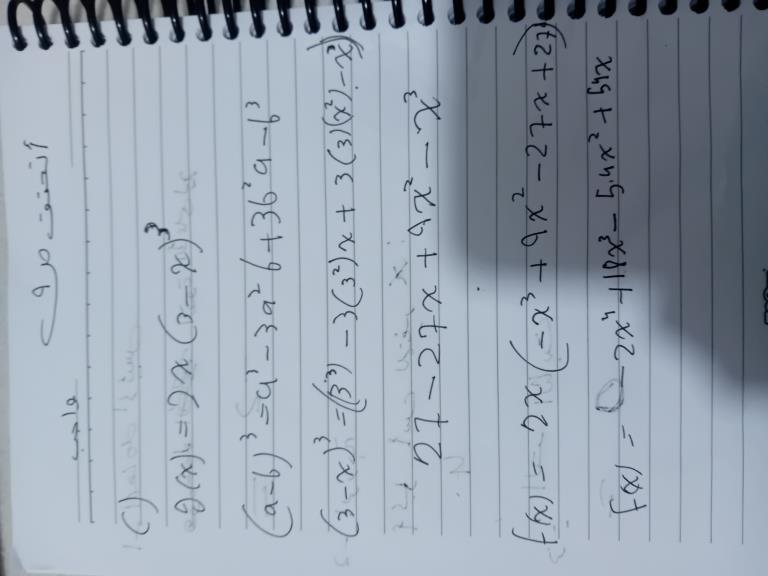 1)
g(x) = 2x (3 - x)³
(a-b)³ = a³ - 3a²b + 3b²a - b³
(3-x)³ = (3³) - 3(3²)x + 3(3)(x²) - x³)
27 - 27x + 9x² - x³
f(x) = 2x (-x³ + 9x² - 27x + 27)
f(x) = -2x⁴ + 18x³ - 54x² + 54x